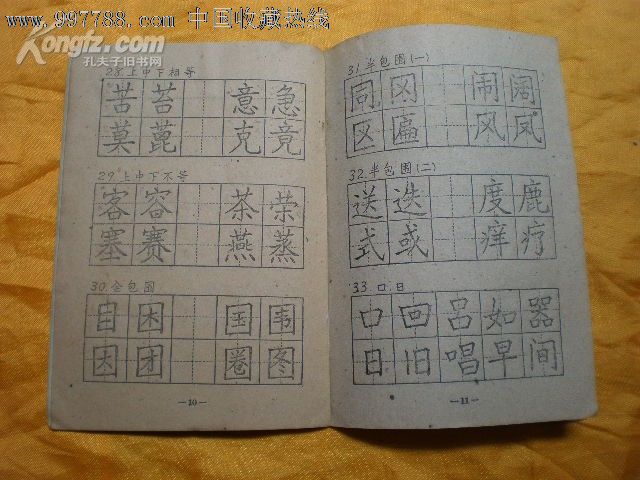 www.997788.com 中国收藏热线
Kongfz.com
孔夫子旧书网
28.上中下相等
苦 苔 意 急
莫 蓖 克 竟
29.上中下不等
客 容 茶 荣
塞 赛 燕 蒸
30.全包围
日 木 国 韦
因 团 圈 图
—10—
31.半包围(一)
同 冈 闹 阔
区 匾 风 凤
32.半包围(二)
送 迭 度 鹿
式 或 痒 疗
33.口.日
口 回 吕 如 器
日 旧 唱 早 间
—11—